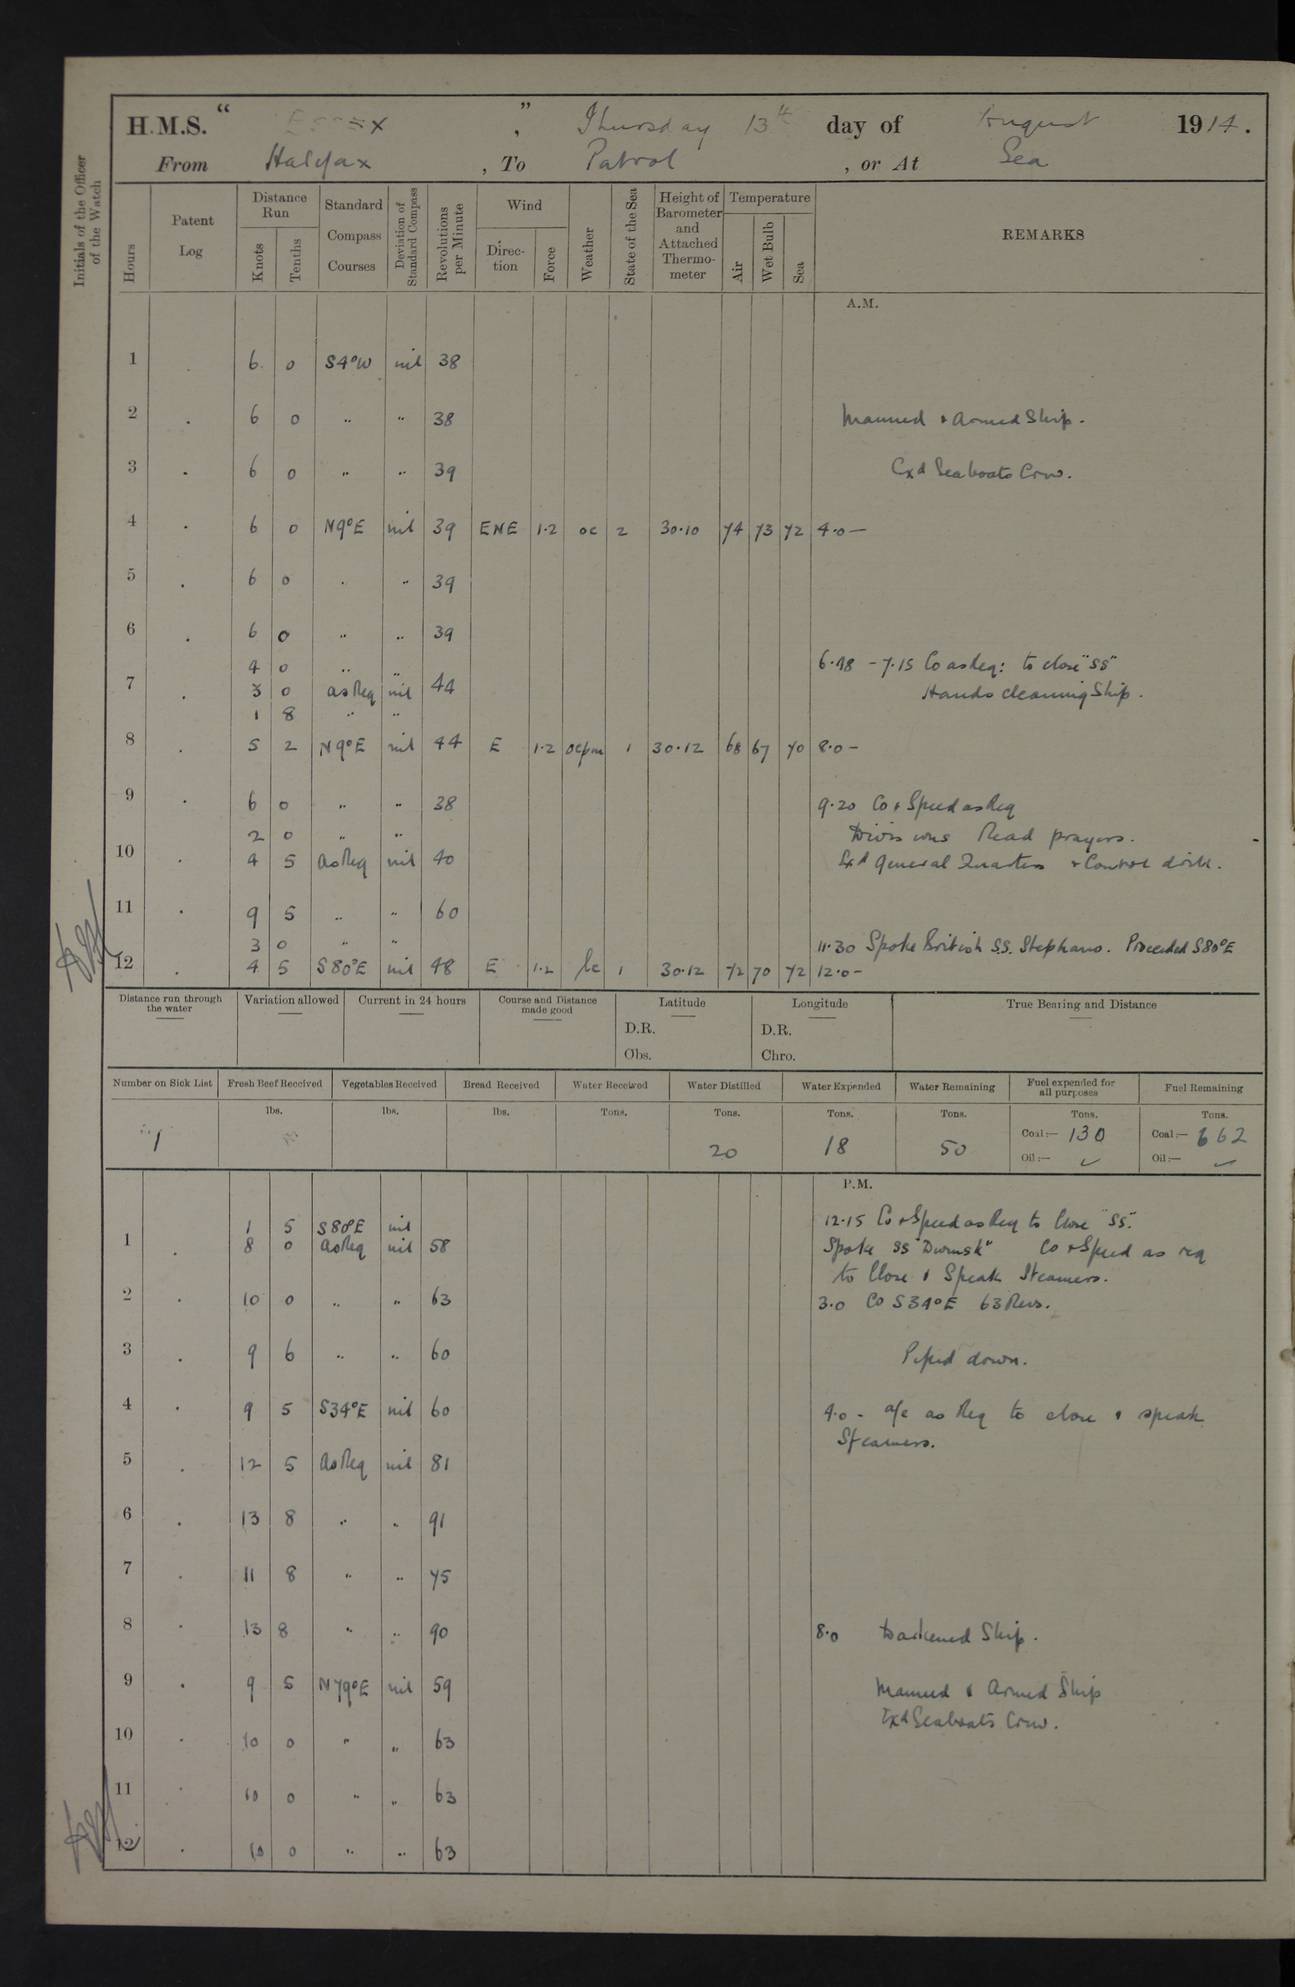 H.M.S. " Essex " , Thursday 13th day of August 1914.
From Halifax , To Patrol , or At Sea
Initials of the Officer of the Watch
Hours
Patent Log
Distance Run
Knots
Tenths
Standard Compass Courses
Deviation of Standard Compass
Revolutions per Minute
Wind
Direction
Force
Weather
State of the Sea
Height of Barometer and Attached Thermometer
Temperature
Air
Wet Bulb
Sea
REMARKS
A.M.
1 6 0 S4°W nil 38
2 6 0 " " 38 Manned & Armed Ship.
3 6 0 " " 39 Exd Seaboats Crew.
4 6 0 N9°E nil 39 ENE 1.2 oc 2 30.10 74 73 72 4.0—
5 6 0 " " 39
6 6 0 " " 39
4 0 " " 6.48 - 7.15 Co as Req: to close "SS"
7 3 0 as Req nil 44 Hands cleaning Ship.
1 8 " "
8 5 2 N9°E nil 44 E 1.2 ocpm 1 30.12 68 67 70 8.0—
9 6 0 " " 38 9.20 Co & Speed as Req
2 0 " " Divisions Read prayers.
10 4 5 as Req nil 40 Exd General Quarters & Control drill.
11 9 5 " " 60
3 0 " " 11.30 Spoke British S.S. Stephano. Proceeded S80°E
12 4 5 S80°E nil 48 E 1.2 bc 1 30.12 72 70 72 12.0—
Distance run through the water
Variation allowed
Current in 24 hours
Course and Distance made good
Latitude
D.R.
Obs.
Longitude
D.R.
Chro.
True Bearing and Distance
Number on Sick List Fresh Beef Received Vegetables Received Bread Received Water Received Water Distilled Water Expended Water Remaining Fuel expended for all purposes Fuel Remaining
lbs. lbs. lbs. Tons. Tons. Tons. Tons. Tons. Tons.
1 20 18 50 Coal:— 130 Coal:— 662
Oil:— ✓ Oil:— ✓
P.M.
1 5 S80°E nil 12.15 Co & Speed as Req to Close "SS".
1 8 0 as Req nil 58 Spoke SS "Dwinsk" Co & Speed as req
to Close & Speak Steamers.
2 10 0 " " 63 3.0 Co S34°E 63 Revs.
3 9 6 " " 60 Piped down.
4 9 5 S34°E nil 60 4.0 - a/c as Req to close & speak
Steamers.
5 12 5 as Req nil 81
6 13 8 " " 91
7 11 8 " " 75
8 13 8 " " 90 8.0 Darkened Ship.
9 9 5 N79°E nil 59 Manned & Armed Ship
Exd Seaboats Crew.
10 10 0 " " 63
11 10 0 " " 63
12 10 0 " " 63